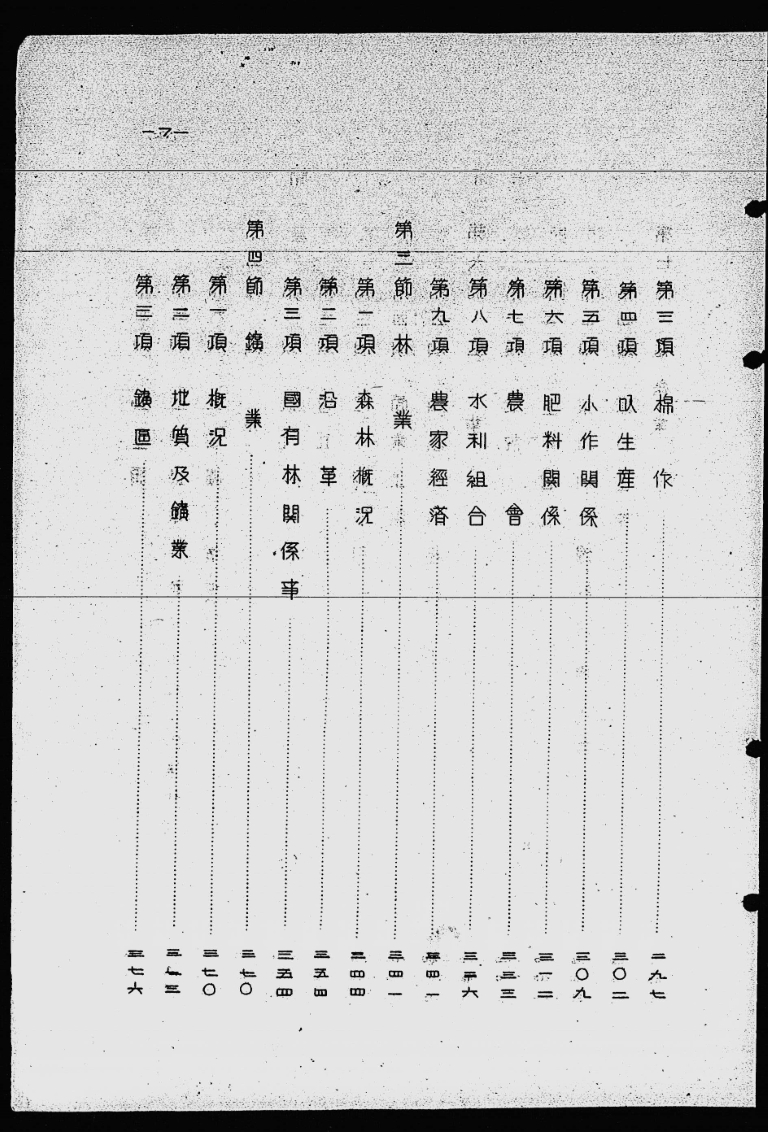 第三項 棉作 二九七
第四項 叺生産 三〇二
第五項 小作関係 三〇九
第六項 肥料関係 三一二
第七項 農會 三三三
第八項 水利組合 三三六
第九項 農家經済 三四一
第三節 林業 三四一
第一項 森林概況 三四四
第二項 沿革 三五四
第三項 國有林関係事 三五四
第四節 鑛業 三七〇
第一項 概況 三七〇
第二項 地質及鑛業 三七三
第三項 鑛區 三七六
—7—